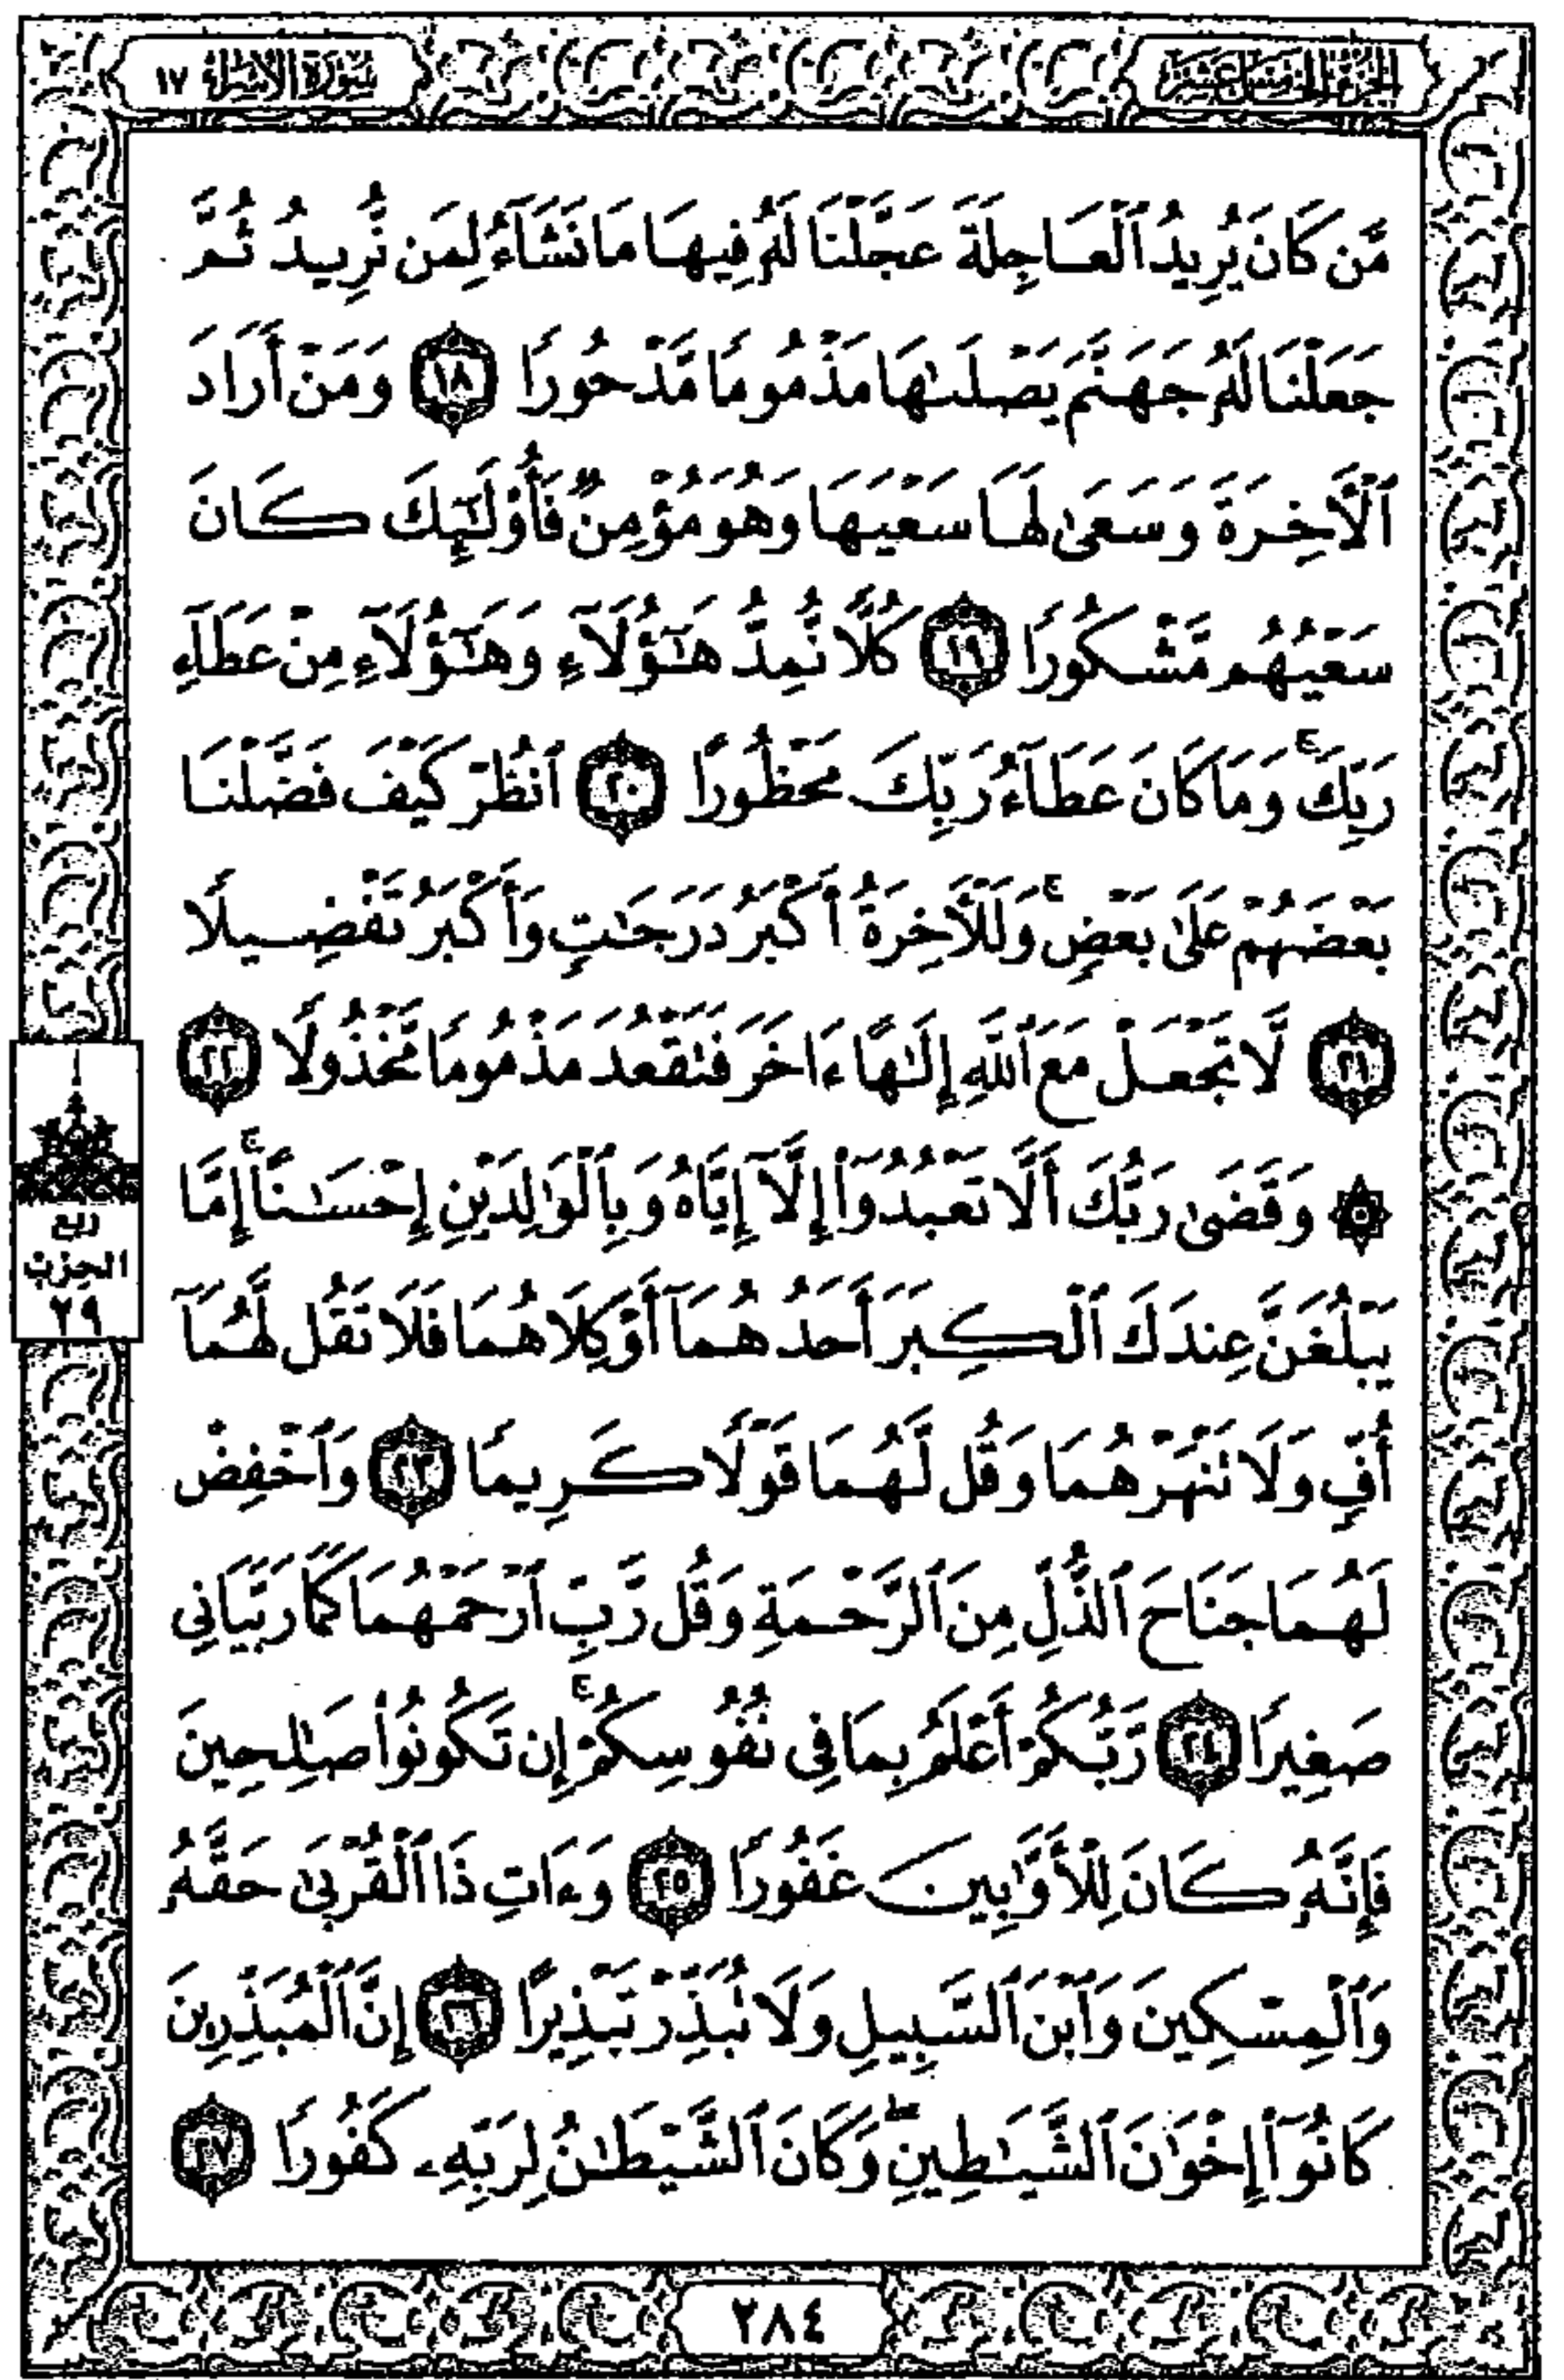 الجزء الخامس عشر
سورة الإسراء ١٧
مَّن كَانَ يُرِيدُ ٱلْعَاجِلَةَ عَجَّلْنَا لَهُۥ فِيهَا مَا نَشَآءُ لِمَن نُّرِيدُ ثُمَّ
جَعَلْنَا لَهُۥ جَهَنَّمَ يَصْلَىٰهَا مَذْمُومًا مَّدْحُورًا ١٨ وَمَنْ أَرَادَ
ٱلْأَخِرَةَ وَسَعَىٰ لَهَا سَعْيَهَا وَهُوَ مُؤْمِنٌ فَأُو۟لَٰٓئِكَ كَانَ
سَعْيُهُم مَّشْكُورًا ١٩ كُلًّا نُّمِدُّ هَٰٓؤُلَآءِ وَهَٰٓؤُلَآءِ مِنْ عَطَآءِ
رَبِّكَ ۚ وَمَا كَانَ عَطَآءُ رَبِّكَ مَحْظُورًا ٢٠ ٱنظُرْ كَيْفَ فَضَّلْنَا
بَعْضَهُمْ عَلَىٰ بَعْضٍ ۚ وَلَلْأَخِرَةُ أَكْبَرُ دَرَجَٰتٍ وَأَكْبَرُ تَفْضِيلًا
٢١ لَّا تَجْعَلْ مَعَ ٱللَّهِ إِلَٰهًا ءَاخَرَ فَتَقْعُدَ مَذْمُومًا مَّخْذُولًا ٢٢
۞ وَقَضَىٰ رَبُّكَ أَلَّا تَعْبُدُوٓا۟ إِلَّآ إِيَّاهُ وَبِٱلْوَٰلِدَيْنِ إِحْسَٰنًا ۚ إِمَّا
يَبْلُغَنَّ عِندَكَ ٱلْكِبَرَ أَحَدُهُمَآ أَوْ كِلَاهُمَا فَلَا تَقُل لَّهُمَآ
أُفٍّ وَلَا تَنْهَرْهُمَا وَقُل لَّهُمَا قَوْلًا كَرِيمًا ٢٣ وَٱخْفِضْ
لَهُمَا جَنَاحَ ٱلذُّلِّ مِنَ ٱلرَّحْمَةِ وَقُل رَّبِّ ٱرْحَمْهُمَا كَمَا رَبَّيَانِى
صَغِيرًا ٢٤ رَّبُّكُمْ أَعْلَمُ بِمَا فِى نُفُوسِكُمْ ۚ إِن تَكُونُوا۟ صَٰلِحِينَ
فَإِنَّهُۥ كَانَ لِلْأَوَّٰبِينَ غَفُورًا ٢٥ وَءَاتِ ذَا ٱلْقُرْبَىٰ حَقَّهُۥ
وَٱلْمِسْكِينَ وَٱبْنَ ٱلسَّبِيلِ وَلَا تُبَذِّرْ تَبْذِيرًا ٢٦ إِنَّ ٱلْمُبَذِّرِينَ
كَانُوٓا۟ إِخْوَٰنَ ٱلشَّيَٰطِينِ ۖ وَكَانَ ٱلشَّيْطَٰنُ لِرَبِّهِۦ كَفُورًا ٢٧
ربع
الحزب
٢٩
٢٨٤